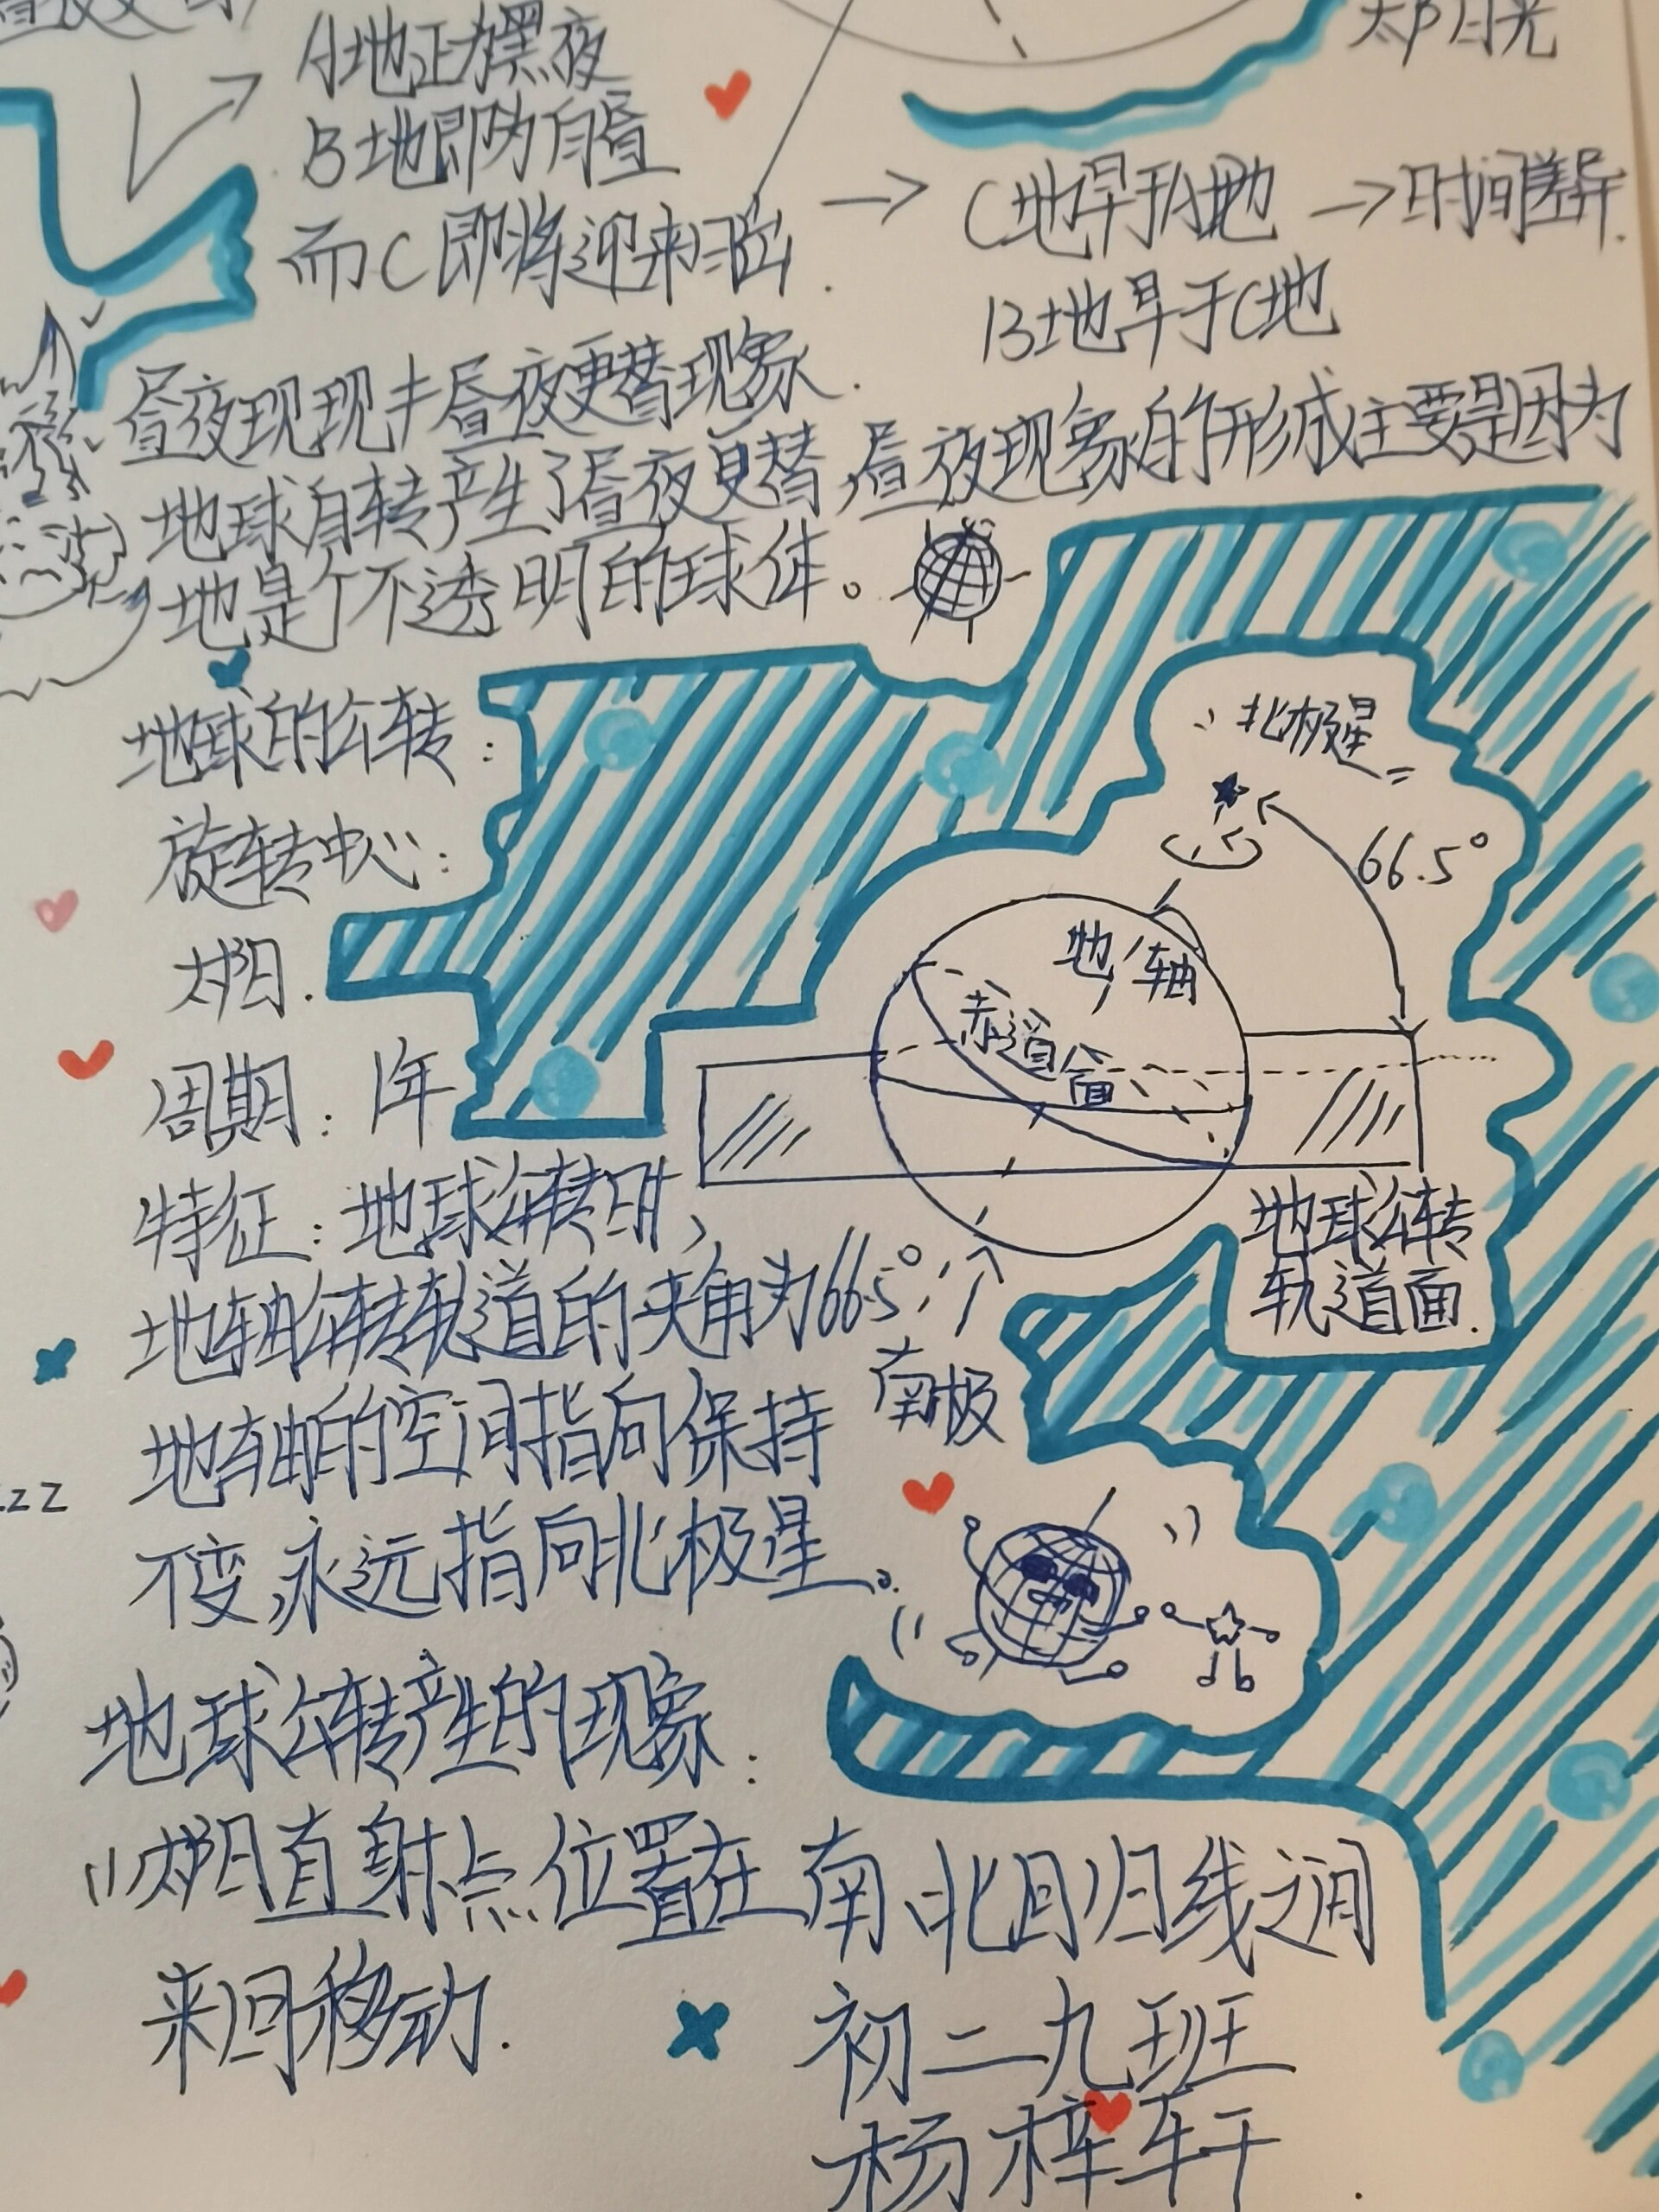 太阳光
A地正为黑夜
B地即为白昼
而C即将迎来日出. → C地早于A地 → 时间差异.
B地早于C地
昼夜现现≠昼夜更替现象.
地球自转产生了昼夜更替,昼夜现象的形成主要是因为
地是个不透明的球体。
地球的公转:
旋转中心:
太阳.
周期:1年
特征:地球公转时,
地轴公转轨道的夹角为66.5°;
地轴的空间指向保持
不变,永远指向北极星。
北极星
66.5°
地轴
赤道面
地球公转
轨道面.
南极
zzz
地球公转产生的现象:
(1)太阳直射点位置在南、北回归线之间
来回移动.
初二九班
杨梓轩